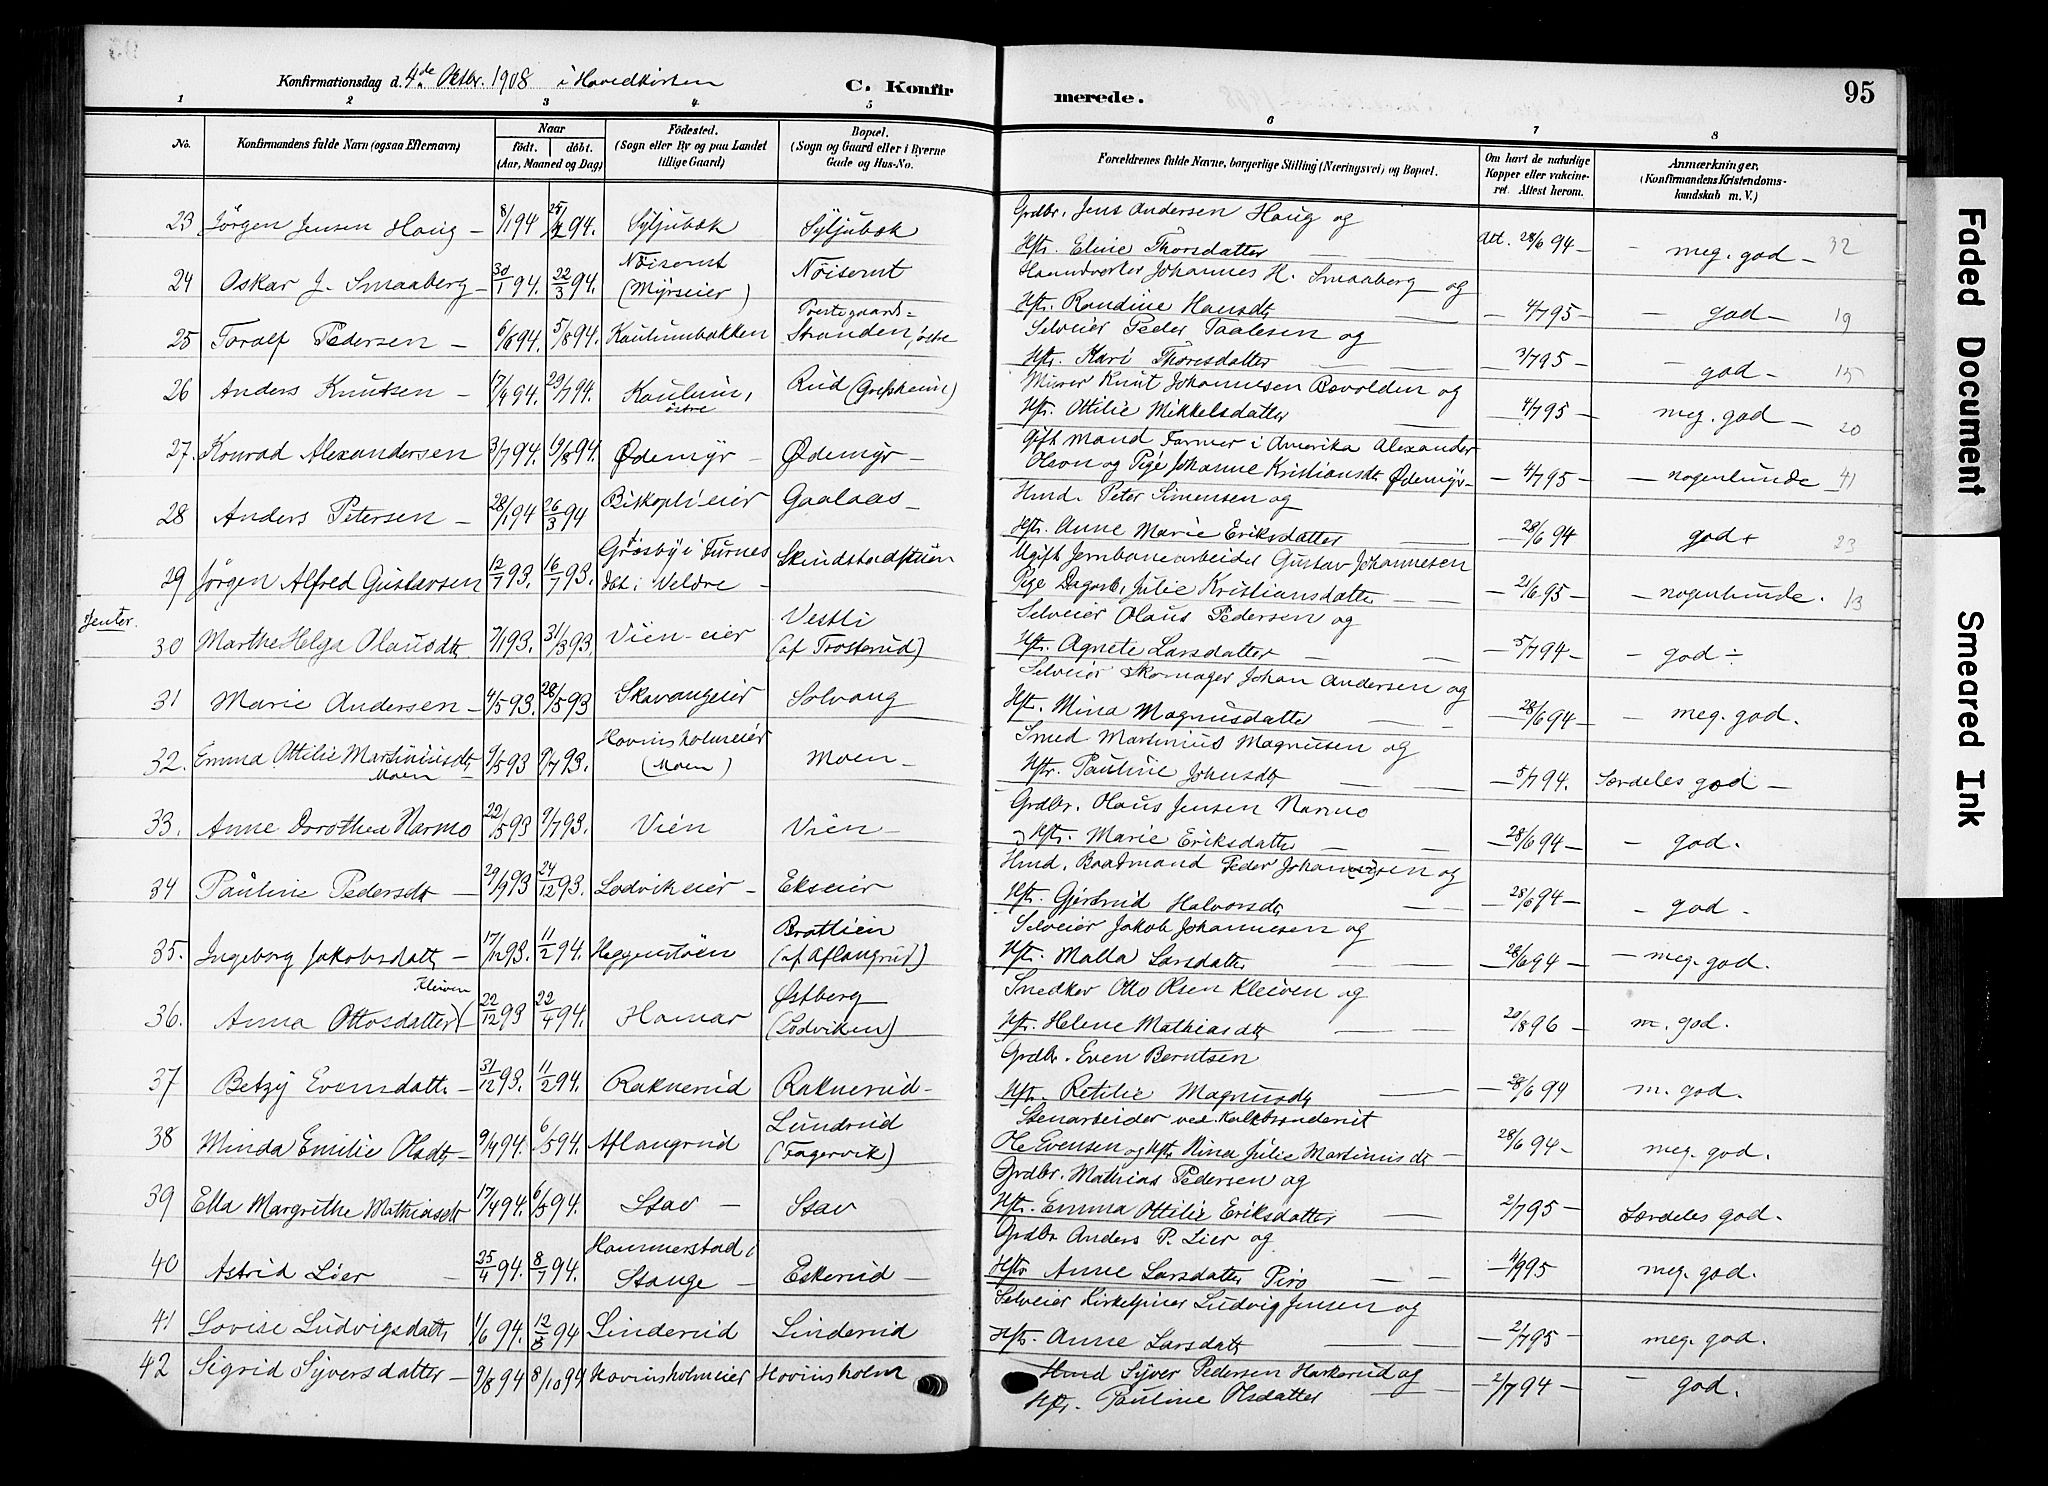 Konfirmationsdag d. 4de Oktbr. 1908 i Hovedkirken
C. Konfirmerede.
95
1 2 3 4 5 6 7 8
No.
Konfirmandens fulde Navn (ogsaa Efternavn)
Naar
født. døbt.
(Aar, Maaned og Dag)
Fødested.
(Sogn eller By og paa Landet tillige Gaard)
Bopæl.
(Sogn og Gaard eller i Byerne Gade og Hus-No.
Forældrenes fulde Navne, borgerlige Stilling (Næringsvei) og Bopæl.
Om havt de naturlige Kopper eller vaccineret. Attest herom.
Anmærkninger,
(Konfirmandens Kristendomskundskab m. V.)
23 Jørgen Jensen Haug - 8/1 94 25/2 94. Syljubak Syljubak Grdbr. Jens Andersen Haug og
Hstr. Eline Thorsdatter Att. 28/6 94 - meg. god - 32
24 Oskar J. Smaaberg - 30/1 94. 22/3 94. Nöisomt (Myrseier) Nöisomt Haandverker Johannes H. Smaaberg og
Hstr. Randine Hansdt - 4/7 95 - god - 19
25 Toralf Pedersen - 6/6 94. 5/8 94. Kaulumbakken Prestegaards-Stranden, östre Selveier Peder Paalesen og
Hstr. Kari Thoresdatter 3/7 95 - - god - 15
26 Anders Knutsen - 17/6 94. 29/7 94. Kaulum, östre Rud (Grefsheim) Murer Knut Johannesen Bövolden og
Hstr. Ottilie Mikkelsdatter - 4/7 95 - meg. god - 20
27. Konrad Alexandersen 3/7 94. 19/8 94. Ødemyr - Ødemyr - Gift mand Farmer i Amerika Alexander
Olson og Pige Johanne Kristiansdt Ødemyr - 4/7 95 - - nogenlunde - 41
28 Anders Petersen - 28/1 94 26/3 94 Biskoplieier Gaalaas - Hmd. Peter Simensen og
Hstr. Anne Marie Eriksdatter - 28/6 94 god + 23
29 Jörgen Alfred Gustavsen 12/7 93. 16/7 93. Grøsby i Furnes dbt. i Veldre - Skindstadstuen Ugift Jernbanearbeider Gustav Johannesen
Pige Dagarb. Julie Kristiansdatter - 21/6 95 - - nogenlunde. 13
Jenter.
30 Marthe Helga Olausdt 7/1 93. 31/3 93. Vien-eier Vestli (af Trosterud) Selveier Olaus Pedersen og
Hstr. Agnete Larsdatter - 5/7 94 - - god ÷
31 Marie Andersen - 4/5 93. 28/5 93 Skavangeier Solvang Selveier Skomager Johan Andersen og
Hstr. Mina Magnusdatter - 28/6 94 - - meg. god.
32. Emma Ottilie Martiniusdt Moen 9/5 93 9/7 93. Hovinsholmeier (Moen) Moen - Smed Martinius Magnusen og
Hstr. Pauline Johnsdt - 5/7 94. Særdeles god -
33. Anne Dorothea Narmo 22/5 93 9/7 93. Vien Vien - Grdbr. Olaus Jensen Narmo
og Hstr. Marie Eriksdatter - 28/6 94 - - god.
34 Pauline Pedersdt - 29/9 93 24/12 93. Lodvikeier - Ekseier Hmd. Baadmand Peder Johannesen og
Hstr. Gjertrud Halvorsdt - 28/6 94 - - god -
35. Ingeborg Jakobsdatt - 17/12 93. 11/2 94. Heggenstöen Brattlien (af Aflangrud) Selveier Jakob Johannesen og
Hstr. Malla Larsdatter - 28/6 94 - - meg. god.
36. Anna Ottosdatter (Kleiven 22/12 93 22/4 94. Hamar Østberg (Lodviken) Snedker Otto Olsen Kleiven og
Hstr. Helene Mathiasdt - 20/8 96 m. god.
37 Betzy Evensdatt - 31/12 93. 11/2 94. Raknerud Raknerud - Grdbr. Even Berntsen
Hstr. Retilie Magnusdt - 28/6 94 m. god.
38 Minda Emilie Olsdt - 9/4 94. 6/5 94. Aflangrud Lundrud (Fagervik) Stenarbeider ved Kalkbrænderiet
Ole Evensen og Hstr. Nina Julie Martiniusdt - 28/6 94 - meg. god.
39 Ella Margrethe Mathiasdt 17/4 94. 6/5 94. Stav - Stav Grdbr. Mathias Pedersen og
Hstr. Emma Ottilie Eriksdatter 2/7 95 - Særdeles god.
40 Astrid Lier - 25/4 94. 8/7 94. Hammerstad i Stange - Eskerud - Grdbr Anders P. Lier og
Hstr Anne Larsdatter Piro - 4/9 95 meg. god.
41 Lovise Ludvigsdatt 1/6 94. 12/8 94 Linderud Linderud Selveier Kirketjener Ludvig Jensen og
Hstr. Anne Larsdatt - 2/7 95 - meg. god.
42 Sigrid Syversdatter - 9/8 94 8/10 94 Hovinsholmeier Hovinsholm Hmd Syver Pedersen Harkerud og
Hstr. Pauline Olsdatter - 2/7 94 - - god.
Faded Document
Smeared Ink